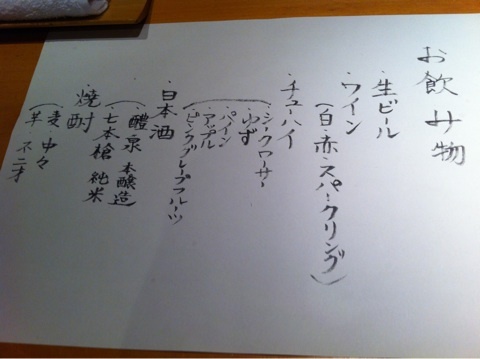 お飲み物
・生ビール
・ワイン
(白・赤・スパークリング)
・チューハイ
シークワーサー
ゆず
パイン
アップル
ピンクグレープフルーツ
・日本酒
醴泉 本醸造
七本槍 純米
・焼酎
麦・中々
芋・不二才